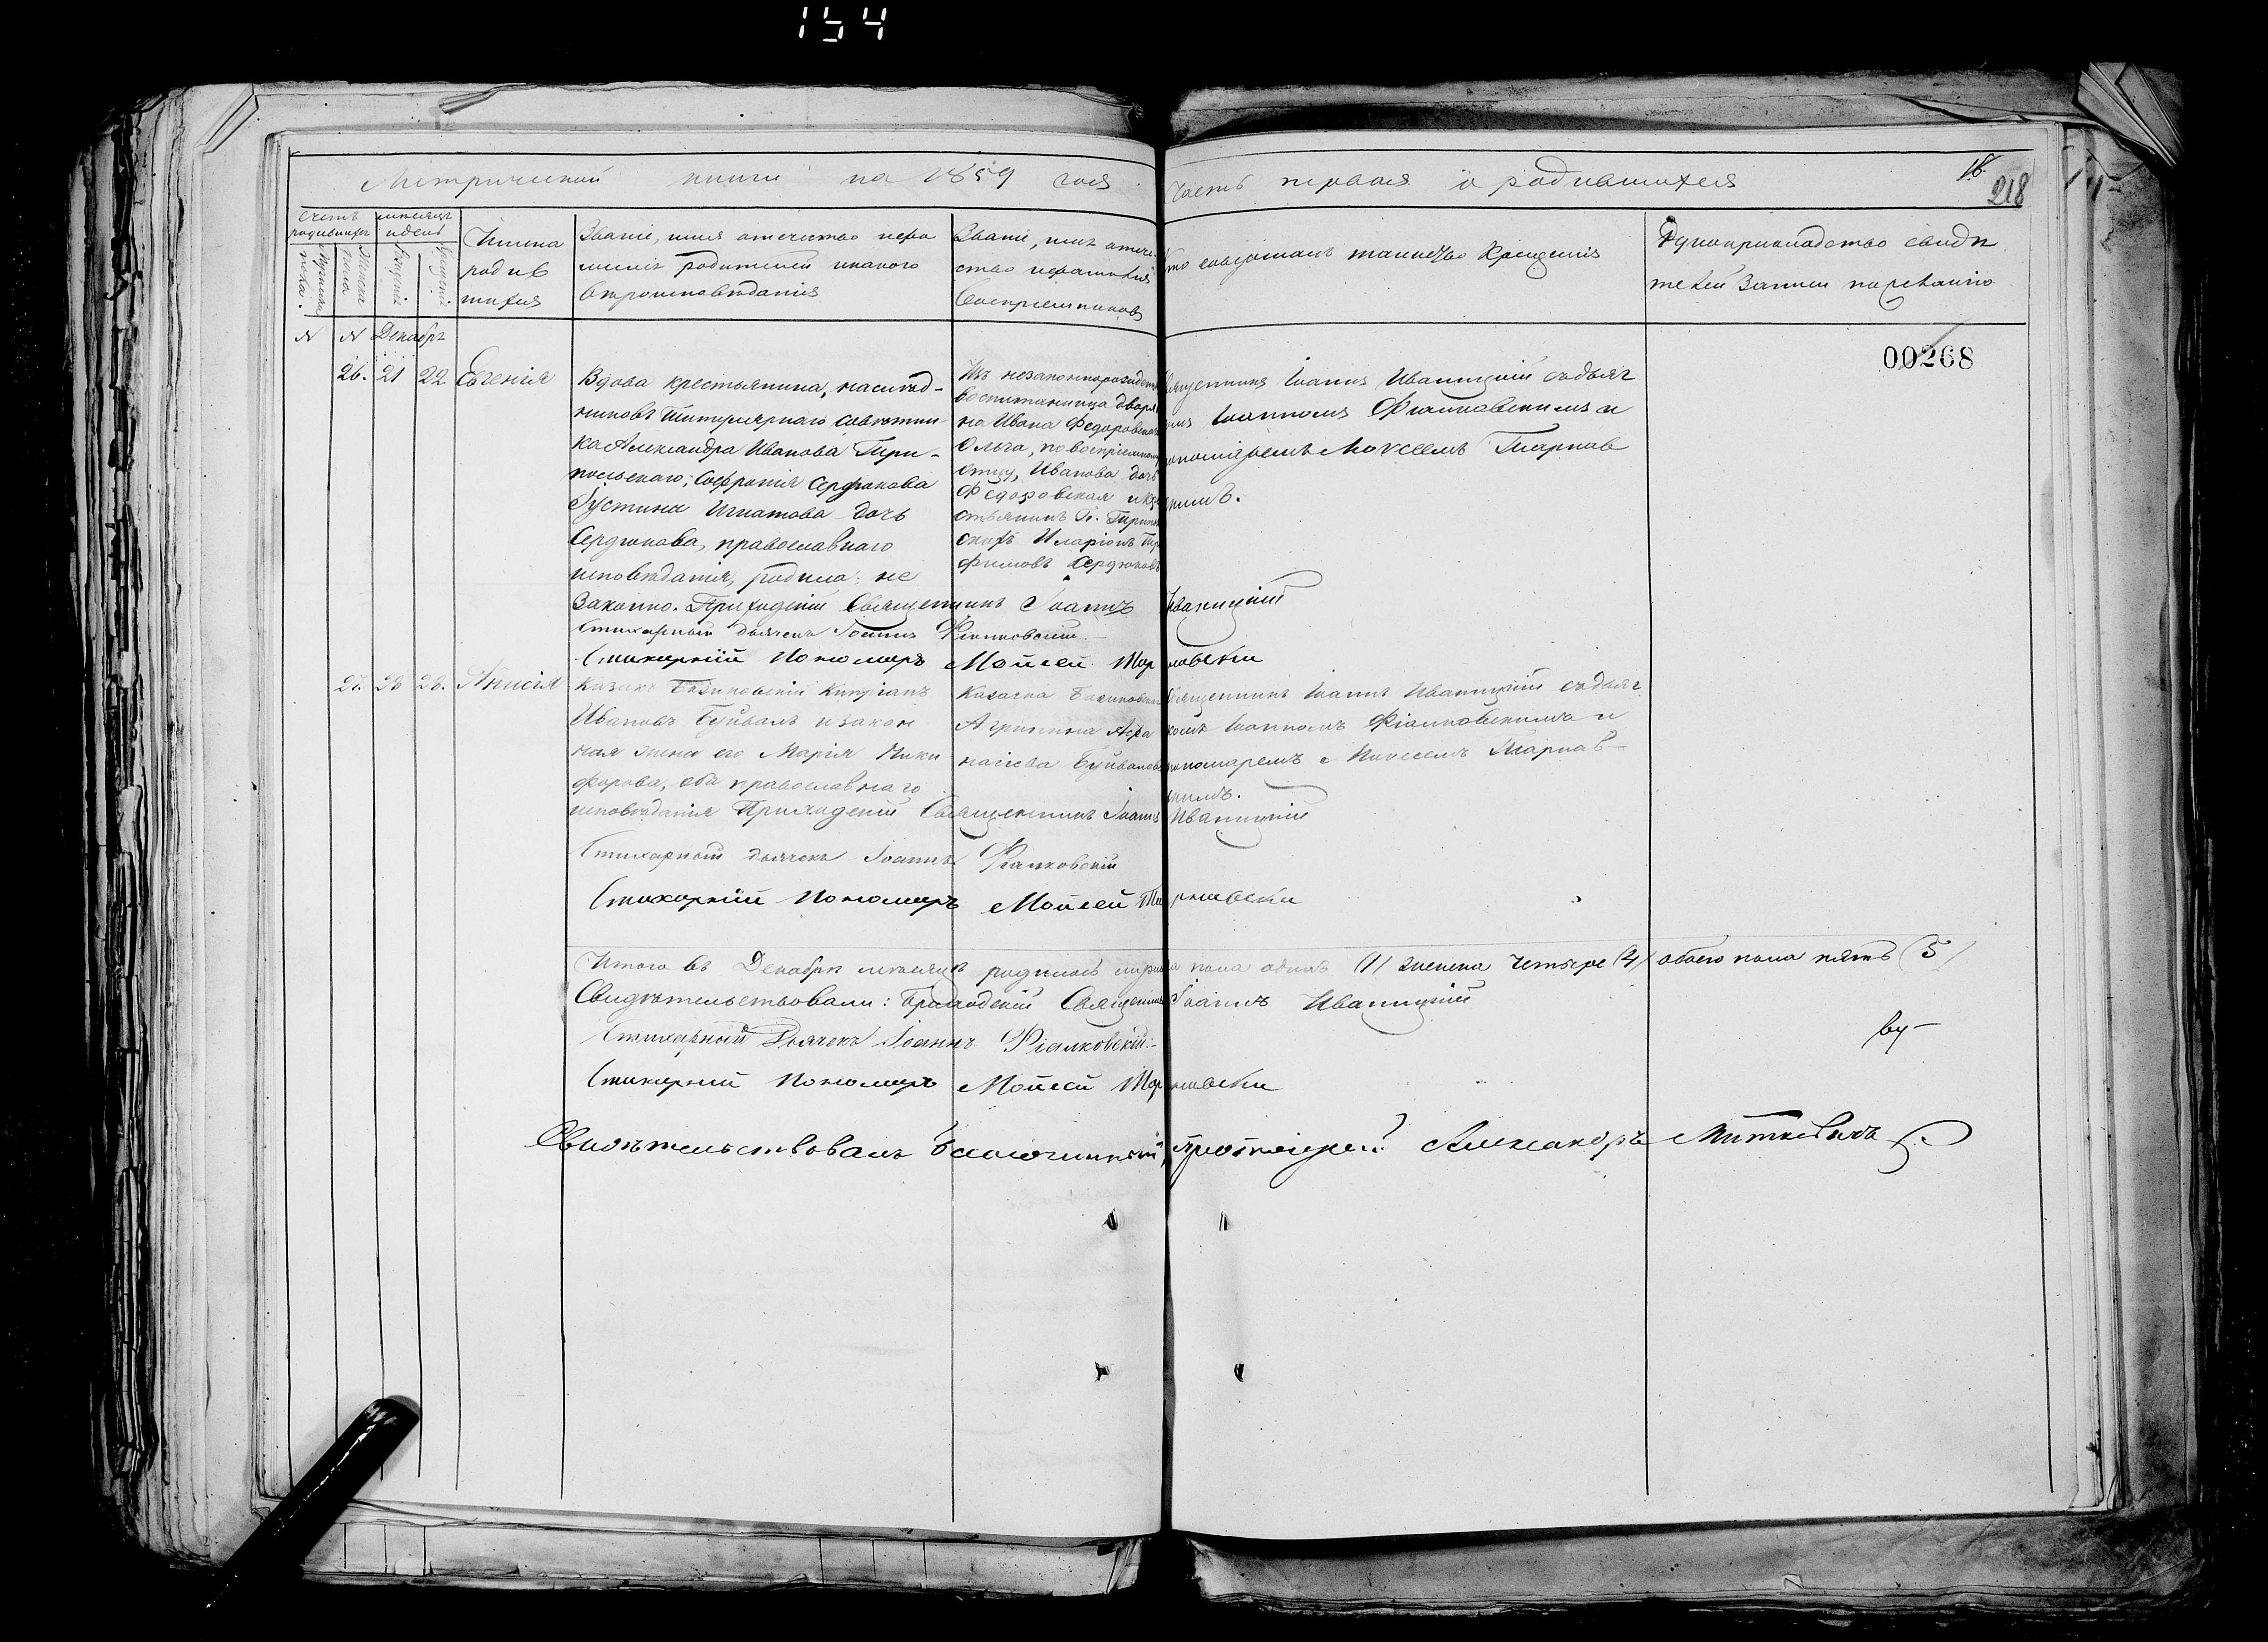 154
Метрической книги на 1859 годъ
Часть первая о родившихся
18
218
Счетъ родившихся
Мужеска пола.
Женска пола
Месяцъ и день
Рожденія.
Крещенія.
Имена
родив
шихся
Званіе, имя отечество и фа
миліи родителей и какого
вѣроисповѣданія
Званіе, имя отече
ство и фамилія
Воспріемниковъ
Кто совершалъ таинство Крещенія
Рукоприкладство свидѣ
телей записи по желанію
N N Декабрь
00268
26. 21 22. Евгенія
Вдова крестьянина, наслѣд-
никовъ Титулярнаго Совѣтни-
ка Александра Иванова Три-
польскаго, Софронія Сердюкова
Іустина Игнатова дочь
Сердюкова, православнаго
исповѣданія, родила не
законно. Приходскій Священникъ Іоаннъ Иваницкій
Стихарный дьячекъ Іоаннъ Фіалковскій.
Стихарній Пономарь Мойсей Тарнавски
Изъ незаконнорожденн
воспитанница дворя
на Ивана Федоровскаго
Ольга, по воспріемному
отцу, Иванова дочь
Федоровская и кре
стьянинъ Г.
скихъ Иларіонъ
фимовъ Сердюковъ
Священникъ Іоаннъ Иваницкій съ дьяч
комъ Іоанномъ Фіалковскимъ и
пономаремъ Мойсеемъ Тарнав
скимъ.
27. 28 28. Анисія
Казакъ Кипріанъ
Ивановъ Буйвалъ и закон
ная жена его Марія Ники
форова, оба православнаго
исповѣданія Приходскій Священникъ Іоаннъ Иваницкій
Стихарный дьячекъ Іоаннъ Фіалковскій
Стихарній Пономарь Мойсей Тарнавски
Казачка
Агрипина Афа
насіева Буйвалова
Священникъ Іоаннъ Иваницкій съ дьяч
комъ Іоанномъ Фіалковскимъ и
пономаремъ Мойсеемъ Тарнав-
скимъ.
Итого въ Декабрѣ мѣсяцѣ родилось мужеска пола одинъ (1) женска четыре (4) обоего пола пять (5)
Свидѣтельствовали: Приходскій Священникъ Іоаннъ Иваницкій
Стихарный Дьячекъ Іоаннъ Фіалковскій.
Стихарній Пономарь Мойсей Тарнавски
Свидѣтельствовалъ Благочинный, протоіерей Александръ Миткевичъ